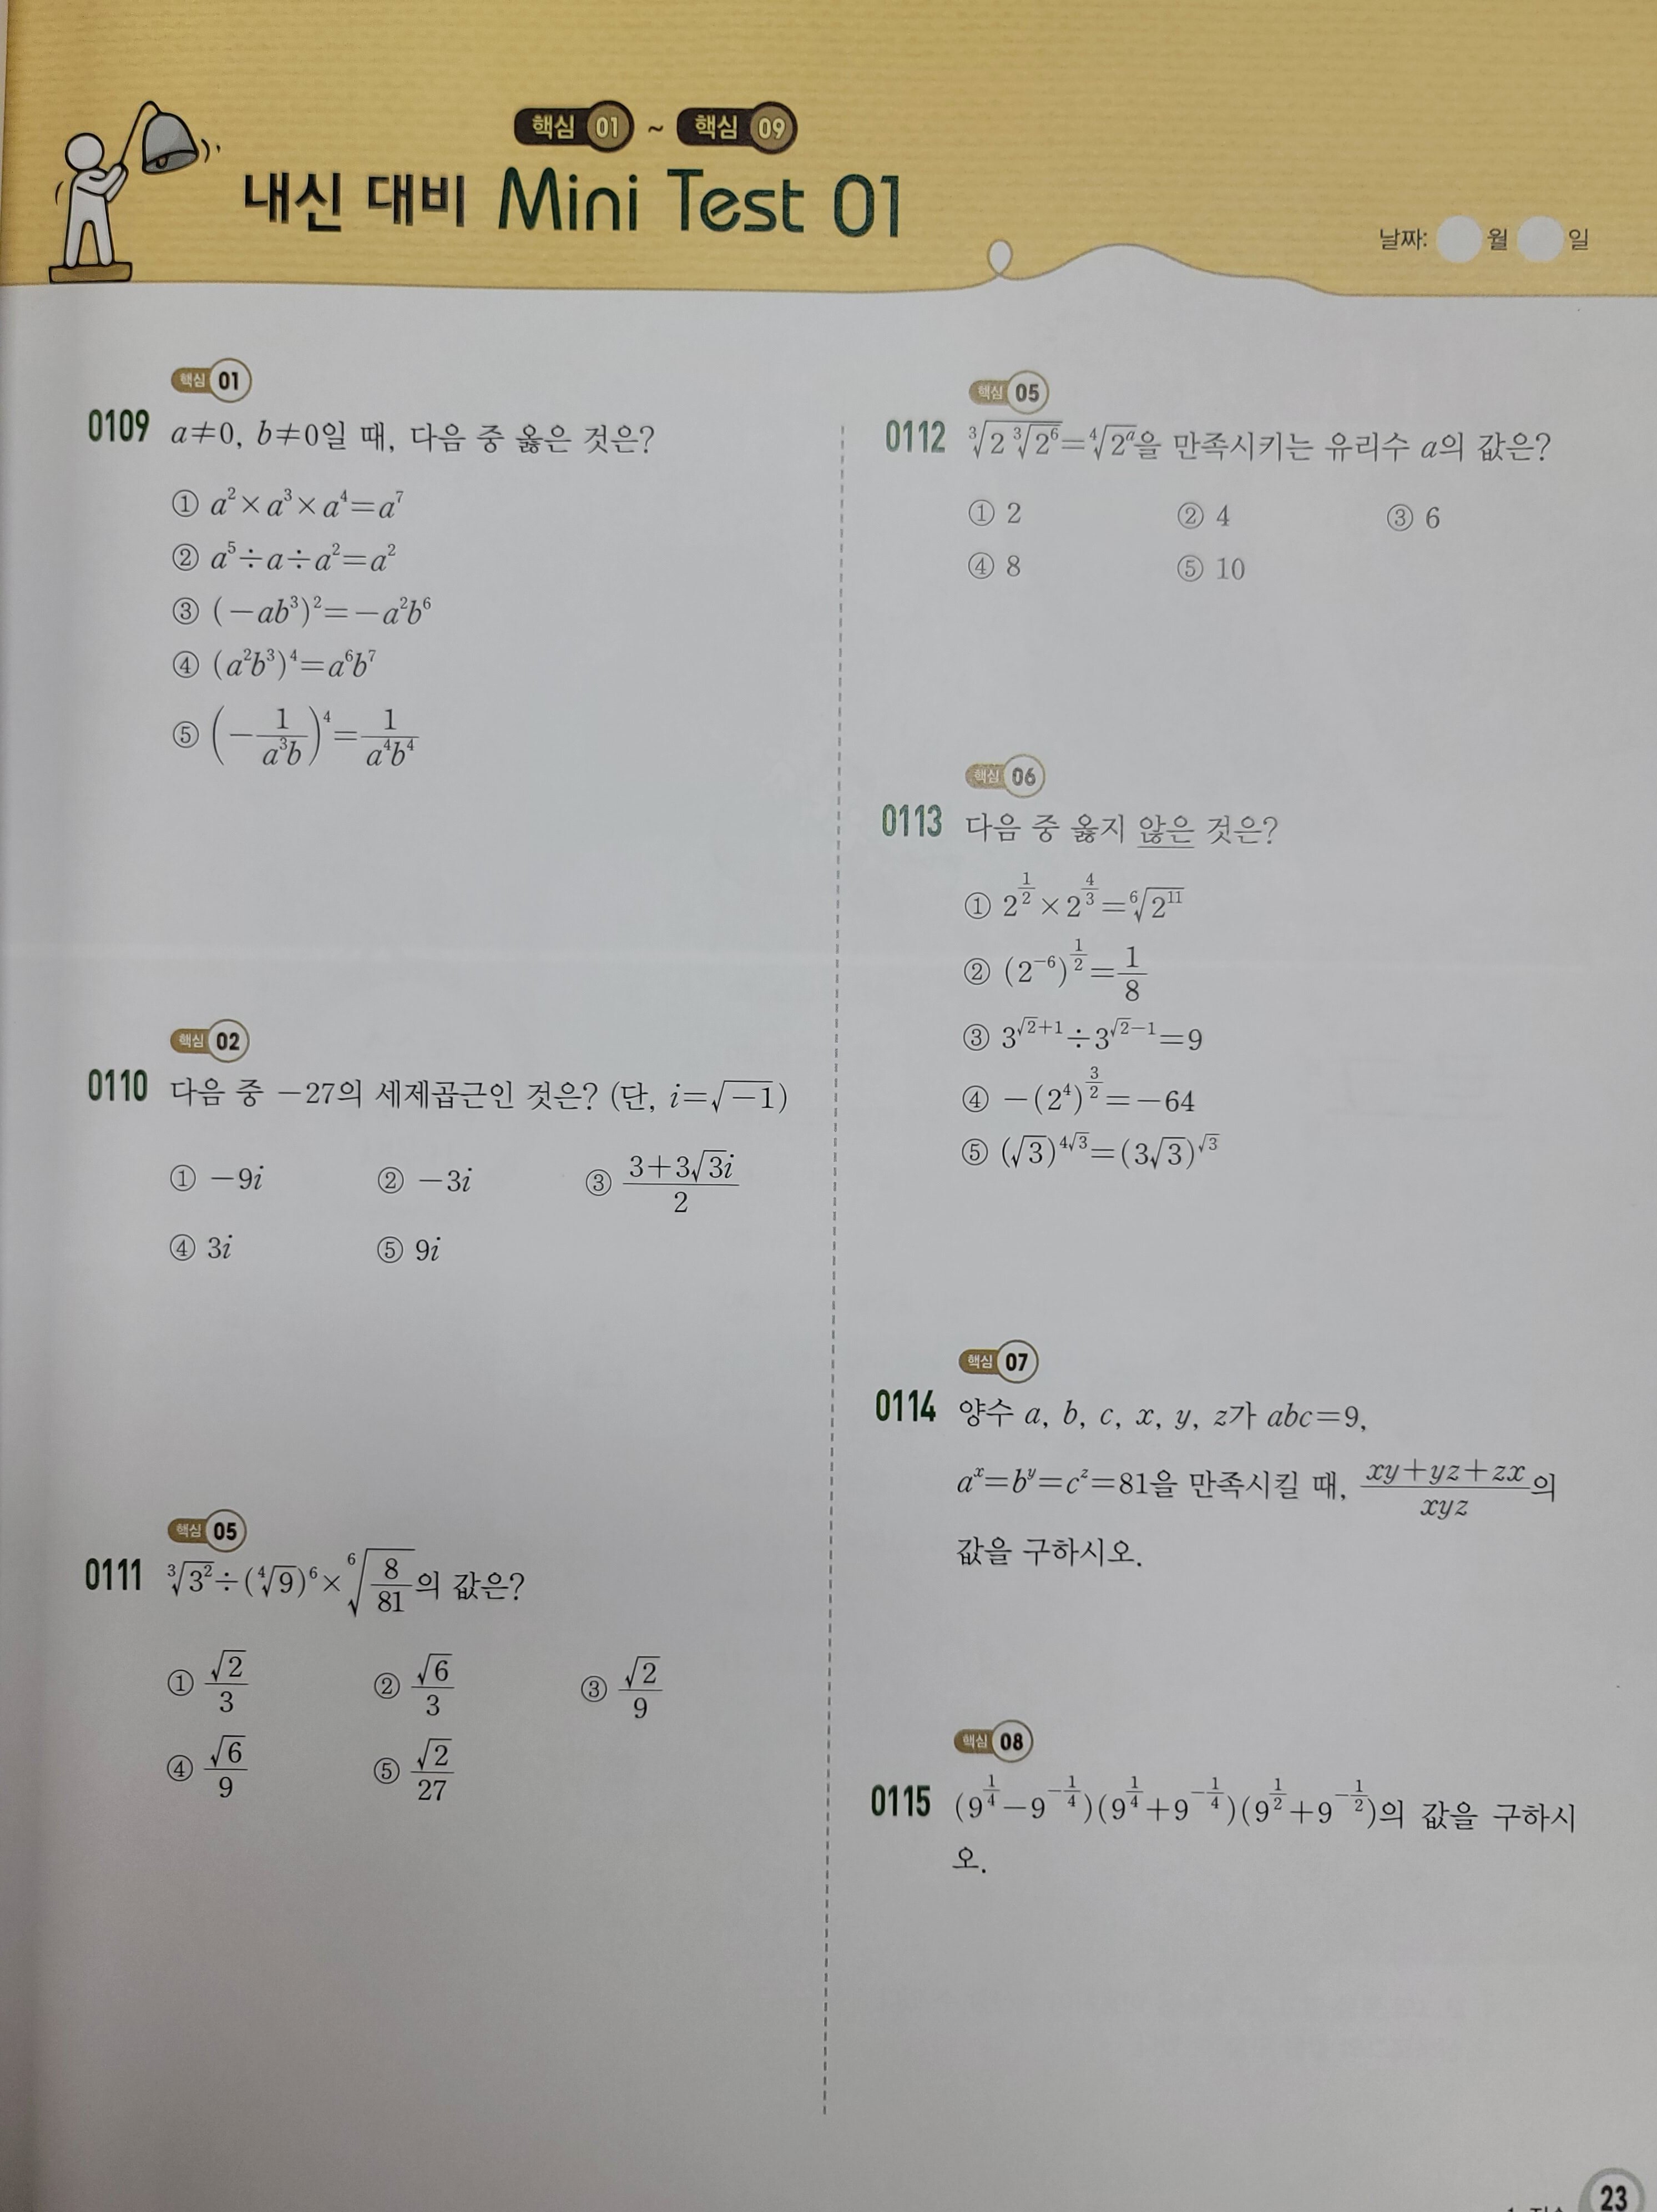 핵심 01 ~ 핵심 09
내신 대비 Mini Test 01
날짜: 월 일
핵심 01
0109 a≠0, b≠0일 때, 다음 중 옳은 것은?
① a²×a³×a⁴=a⁷
② a⁵÷a÷a²=a²
③ (−ab³)²=−a²b⁶
④ (a²b³)⁴=a⁶b⁷
⑤ (−1/(a³b))⁴=1/(a⁴b⁴)
핵심 02
0110 다음 중 −27의 세제곱근인 것은? (단, i=√(−1))
① −9i ② −3i ③ (3+3√3i)/2
④ 3i ⑤ 9i
핵심 05
0111 ³√(3²)÷(⁴√9)⁶×⁶√(8/81)의 값은?
① √2/3 ② √6/3 ③ √2/9
④ √6/9 ⑤ √2/27
핵심 05
0112 ³√(2 ³√(2⁶))=⁴√(2ᵃ)을 만족시키는 유리수 a의 값은?
① 2 ② 4 ③ 6
④ 8 ⑤ 10
핵심 06
0113 다음 중 옳지 않은 것은?
① 2^(1/2)×2^(4/3)=⁶√(2¹¹)
② (2⁻⁶)^(1/2)=1/8
③ 3^(√2+1)÷3^(√2−1)=9
④ −(2⁴)^(3/2)=−64
⑤ (√3)^(4√3)=(3√3)^(√3)
핵심 07
0114 양수 a, b, c, x, y, z가 abc=9,
aˣ=bʸ=cᶻ=81을 만족시킬 때, (xy+yz+zx)/(xyz)의
값을 구하시오.
핵심 08
0115 (9^(1/4)−9^(−1/4))(9^(1/4)+9^(−1/4))(9^(1/2)+9^(−1/2))의 값을 구하시
오.
23